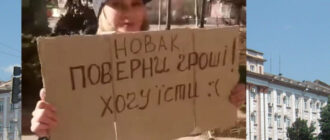 НОВАК,
ПОВЕРНИ ГРОШІ!
ХОЧУ ЇСТИ :(